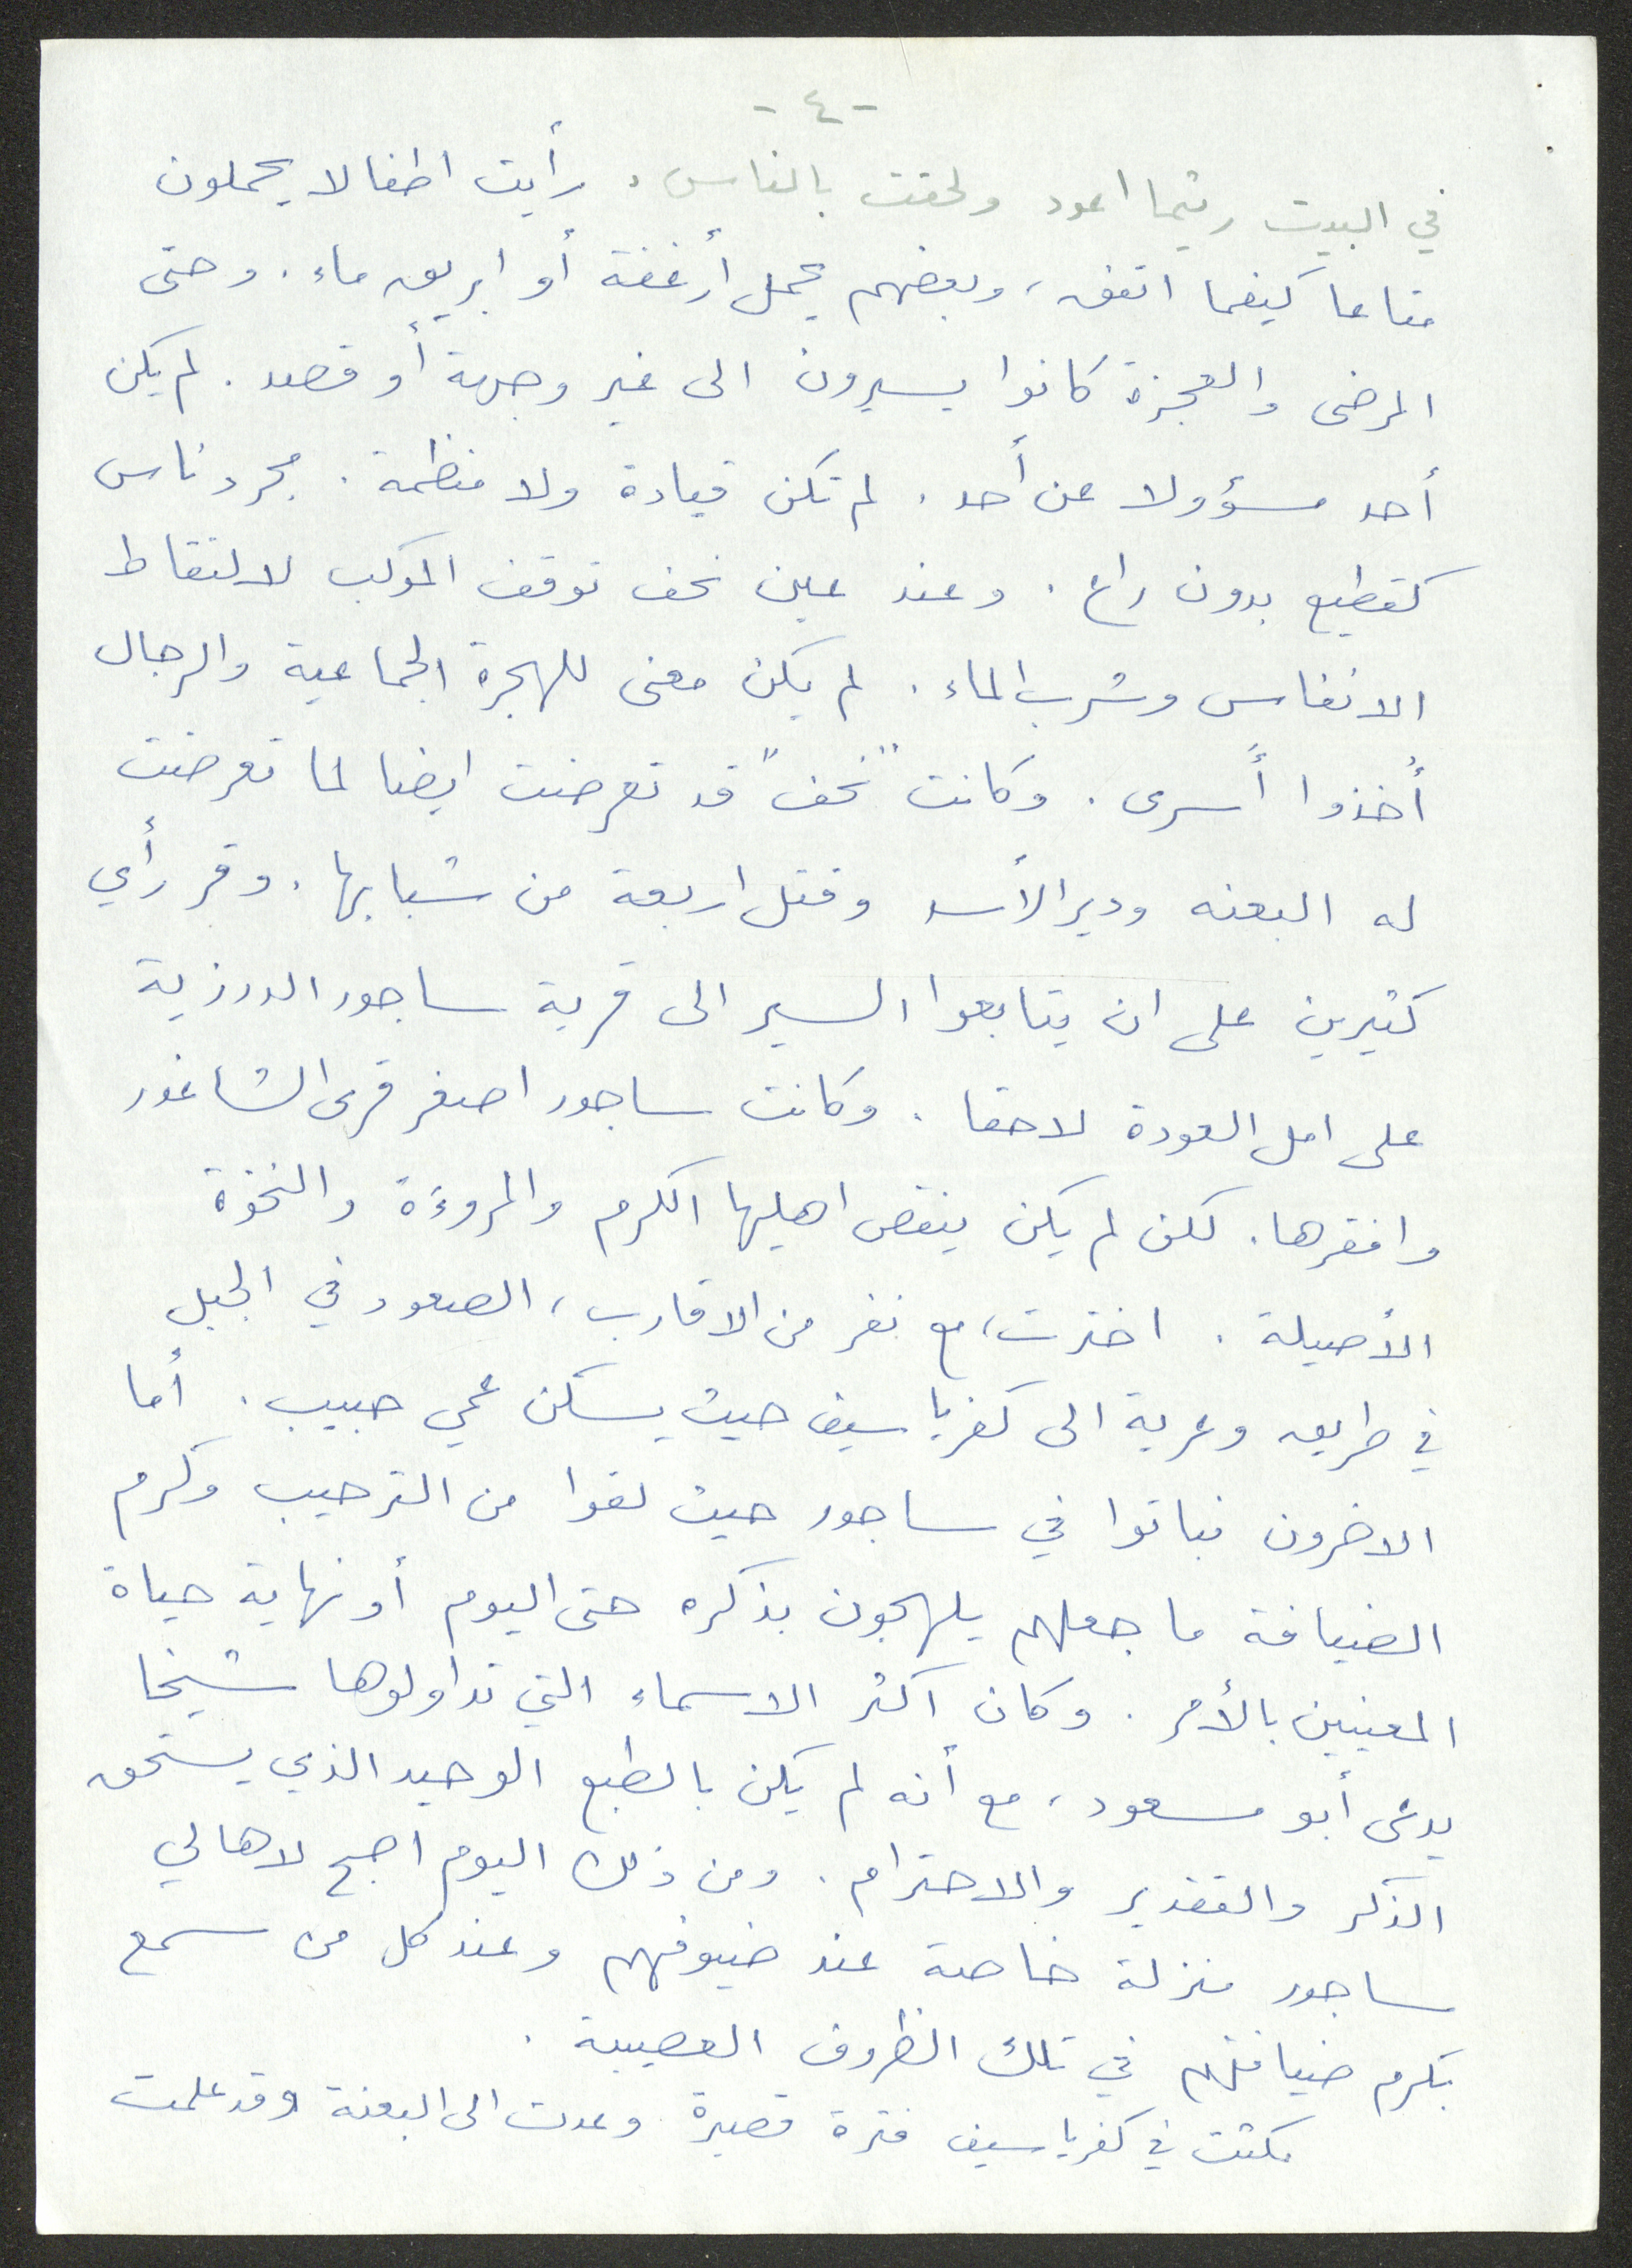 - ٤ -
في البيت ريثما اعود ولحقت بالناس. رأيت اطفالا يحملون
متاعا كيفما اتفق، وبعضهم يحمل أرغفة أو ابريق ماء. وحتى
المرضى والعجزة كانوا يسيرون الى غير وجهة أو قصد. لم يكن
أحد مسؤولا عن أحد. لم تكن قيادة ولا منظمة. مجرد ناس
كقطيع بدون راع. وعند عين نحف توقف الموكب لالتقاط
الانفاس وشرب الماء. لم يكن معنى للهجرة الجماعية والرجال
أخذوا أسرى. وكانت "نحف" قد تعرضت ايضا لما تعرضت
له البعنه ودير الأسد وقتل اربعة من شبابها. وقر رأي
كثيرين على ان يتابعوا السير الى قرية ساجور الدرزية
على امل العودة لاحقا. وكانت ساجور اصغر قرى الشاغور
وافقرها. لكن لم يكن ينقص اهليها الكرم والمروءة والنخوة
الأصيلة. اخترت، مع نفر من الاقارب، الصعود في الجبل
في طريق وعرية الى كفرياسيف حيث يسكن عمي حبيب. أما
الاخرون فباتوا في ساجور حيث لقوا من الترحيب وكرم
الضيافة ما جعلهم يلهجون بذكره حتى اليوم أو نهاية حياة
المعنيين بالأمر. وكان اكثر الاسماء التي تداولوها شيخا
يدعى أبو مسعود، مع أنه لم يكن بالطبع الوحيد الذي يستحق
الذكر والتقدير والاحترام. ومن ذلك اليوم اصبح لاهالي
ساجور منزلة خاصة عند ضيوفهم وعند كل من سمع
بكرم ضيافتهم في تلك الظروف العصيبة.
مكثت في كفرياسيف فترة قصيرة وعدت الى البعنة وقد علمت